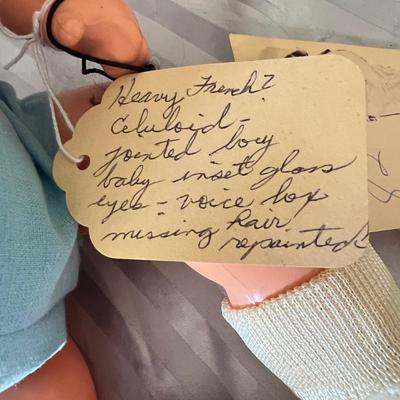 Heavy French?
Celuloid -
jointed boy
baby inset glass
eyes - voice box
missing hair
repainted